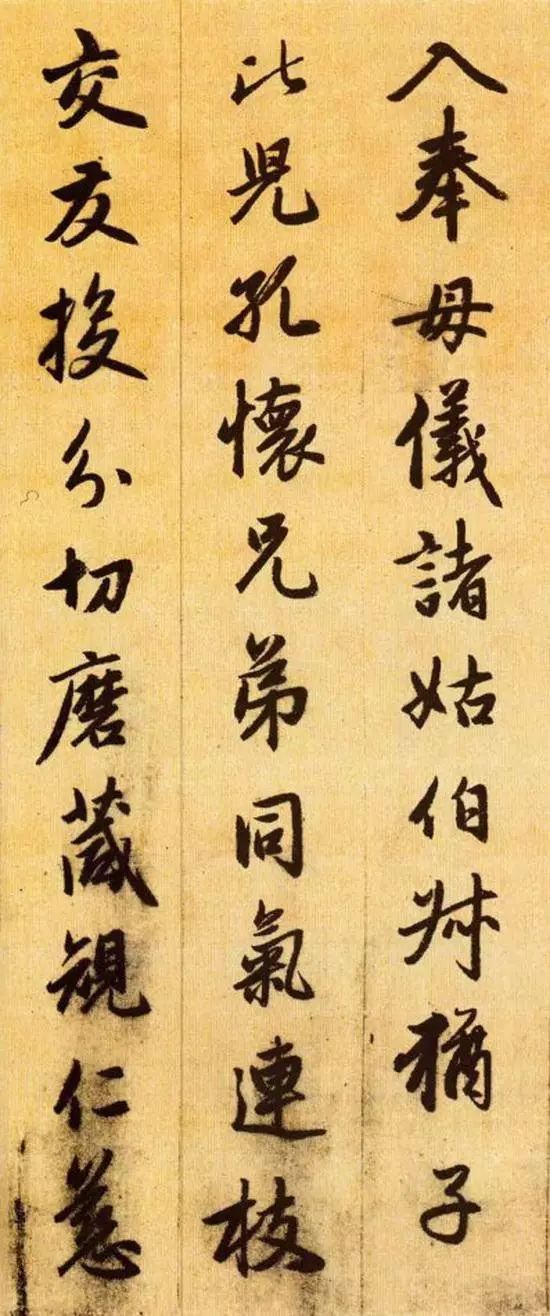 入奉母儀諸姑伯叔猶子
比兒孔懷兄弟同氣連枝
交友投分切磨箴規仁慈